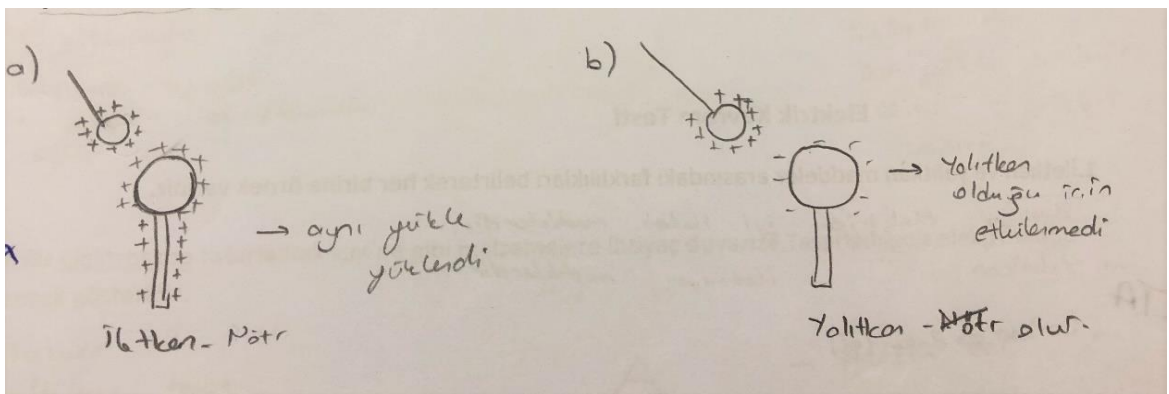 a)
→ aynı yükle
yüklendi
İletken - Nötr
b)
→ Yalıtkan
olduğu için
etkilenmedi
Yalıtkan - Nötr olur.